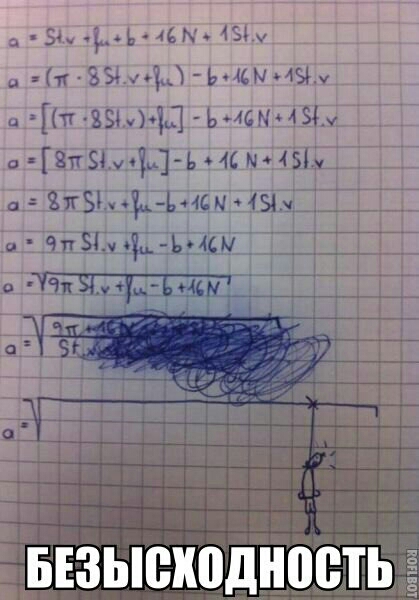 a = St.v + fu + b + 16N + 1St.v
a = (π · 8St.v + fu) - b + 16N + 1St.v
a = [(π · 8St.v) + fu] - b + 16N + 1St.v
a = [8π St.v + fu] - b + 16N + 1St.v
a = 8π St.v + fu - b + 16N + 1St.v
a = 9π St.v + fu - b + 16N
a = √9π St.v + fu - b + 16N
a = √ 9π + 16
St.
a = √
БЕЗЫСХОДНОСТЬ
ROFLBOT